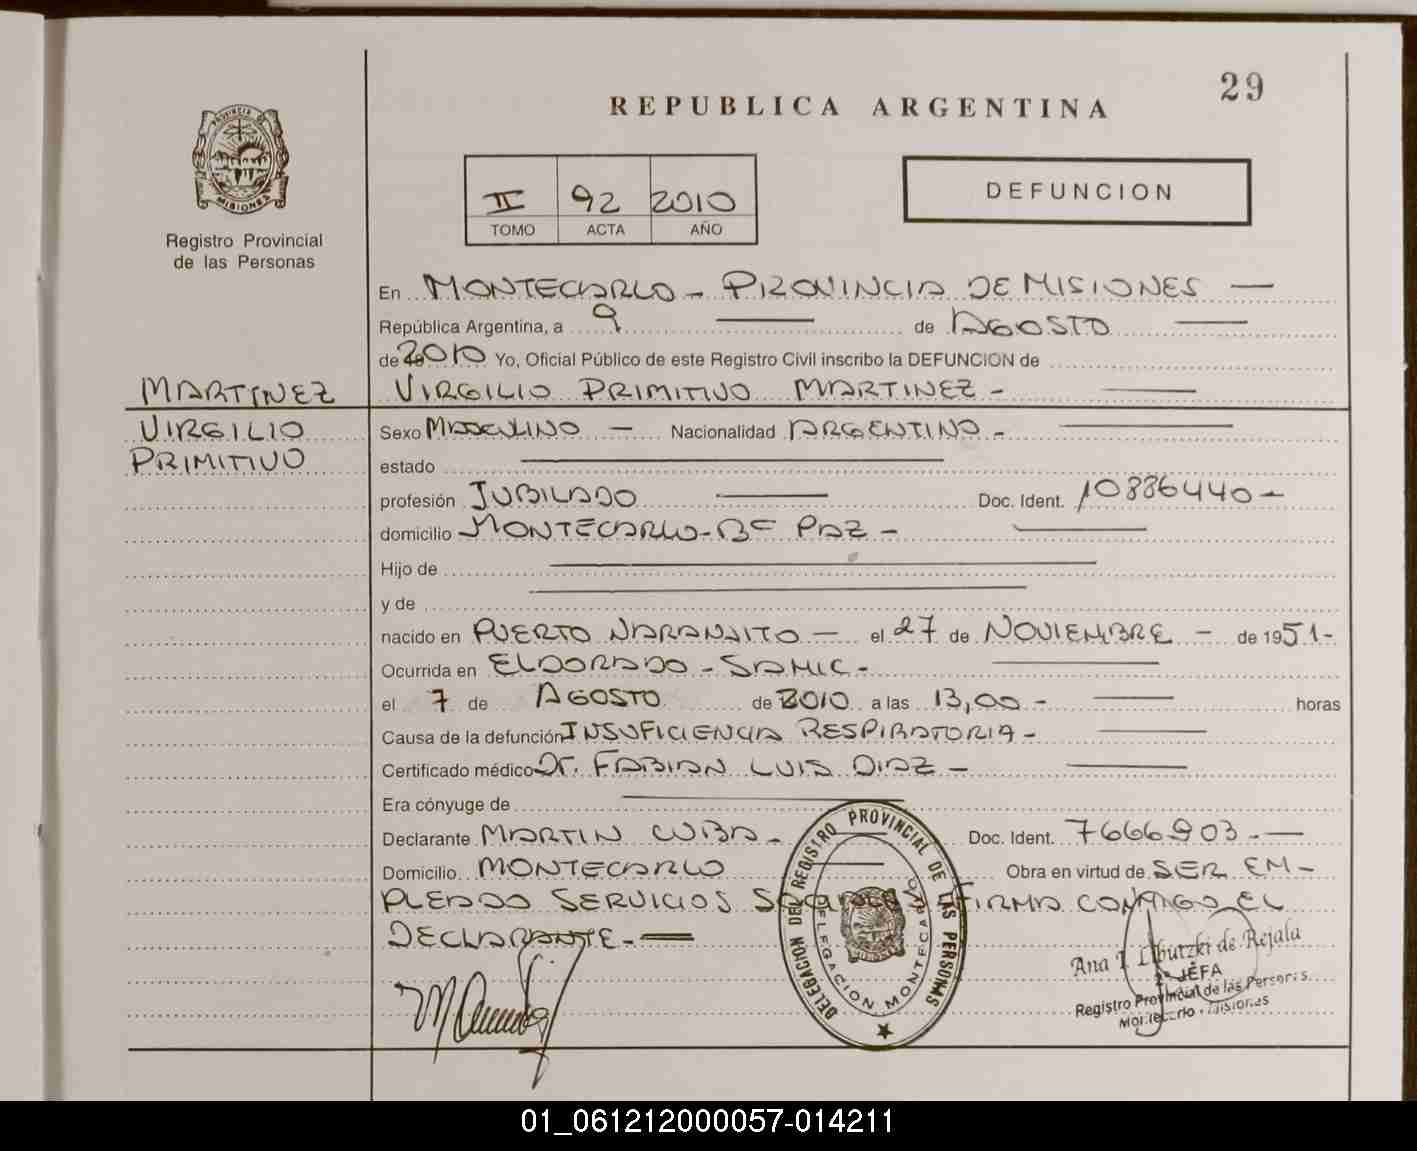 29
REPUBLICA ARGENTINA
PROVINCIA DE
MISIONES
Registro Provincial
de las Personas
II 92 2010
TOMO ACTA AÑO
DEFUNCION
En MONTECARLO - PROVINCIA DE MISIONES —
República Argentina, a 9 — de AGOSTO —
de 2010 Yo, Oficial Público de este Registro Civil inscribo la DEFUNCION de
MARTINEZ
VIRGILIO
PRIMITIVO
VIRGILIO PRIMITIVO MARTINEZ - —
Sexo MASCULINO — Nacionalidad ARGENTINO - —
estado —
profesión JUBILADO — Doc. Ident. 10886440 -
domicilio MONTECARLO - Bº PAZ - —
Hijo de —
y de —
nacido en PUERTO NARANJITO — el 27 de NOVIEMBRE - de 1951 -
Ocurrida en ELDORADO - SAMIC - —
el 7 de AGOSTO de 2010 a las 13,00 - — horas
Causa de la defunción INSUFICIENCIA RESPIRATORIA - —
Certificado médico Dr. FABIAN LUIS DIAZ - —
Era cónyuge de —
Declarante MARTIN CUBA - — Doc. Ident. 7666903 - —
Domicilio MONTECARLO — Obra en virtud de SER EM-
PLEADO SERVICIOS SOCIALES FIRMA CONMIGO EL
DECLARANTE. —
DELEGACION DEL REGISTRO PROVINCIAL DE LAS PERSONAS
DELEGACION MONTECARLO
Ana I. Libutzki de Rejala
2ª JEFA
Registro Provincial de las Personas
Montecarlo - Misiones
01_061212000057-014211